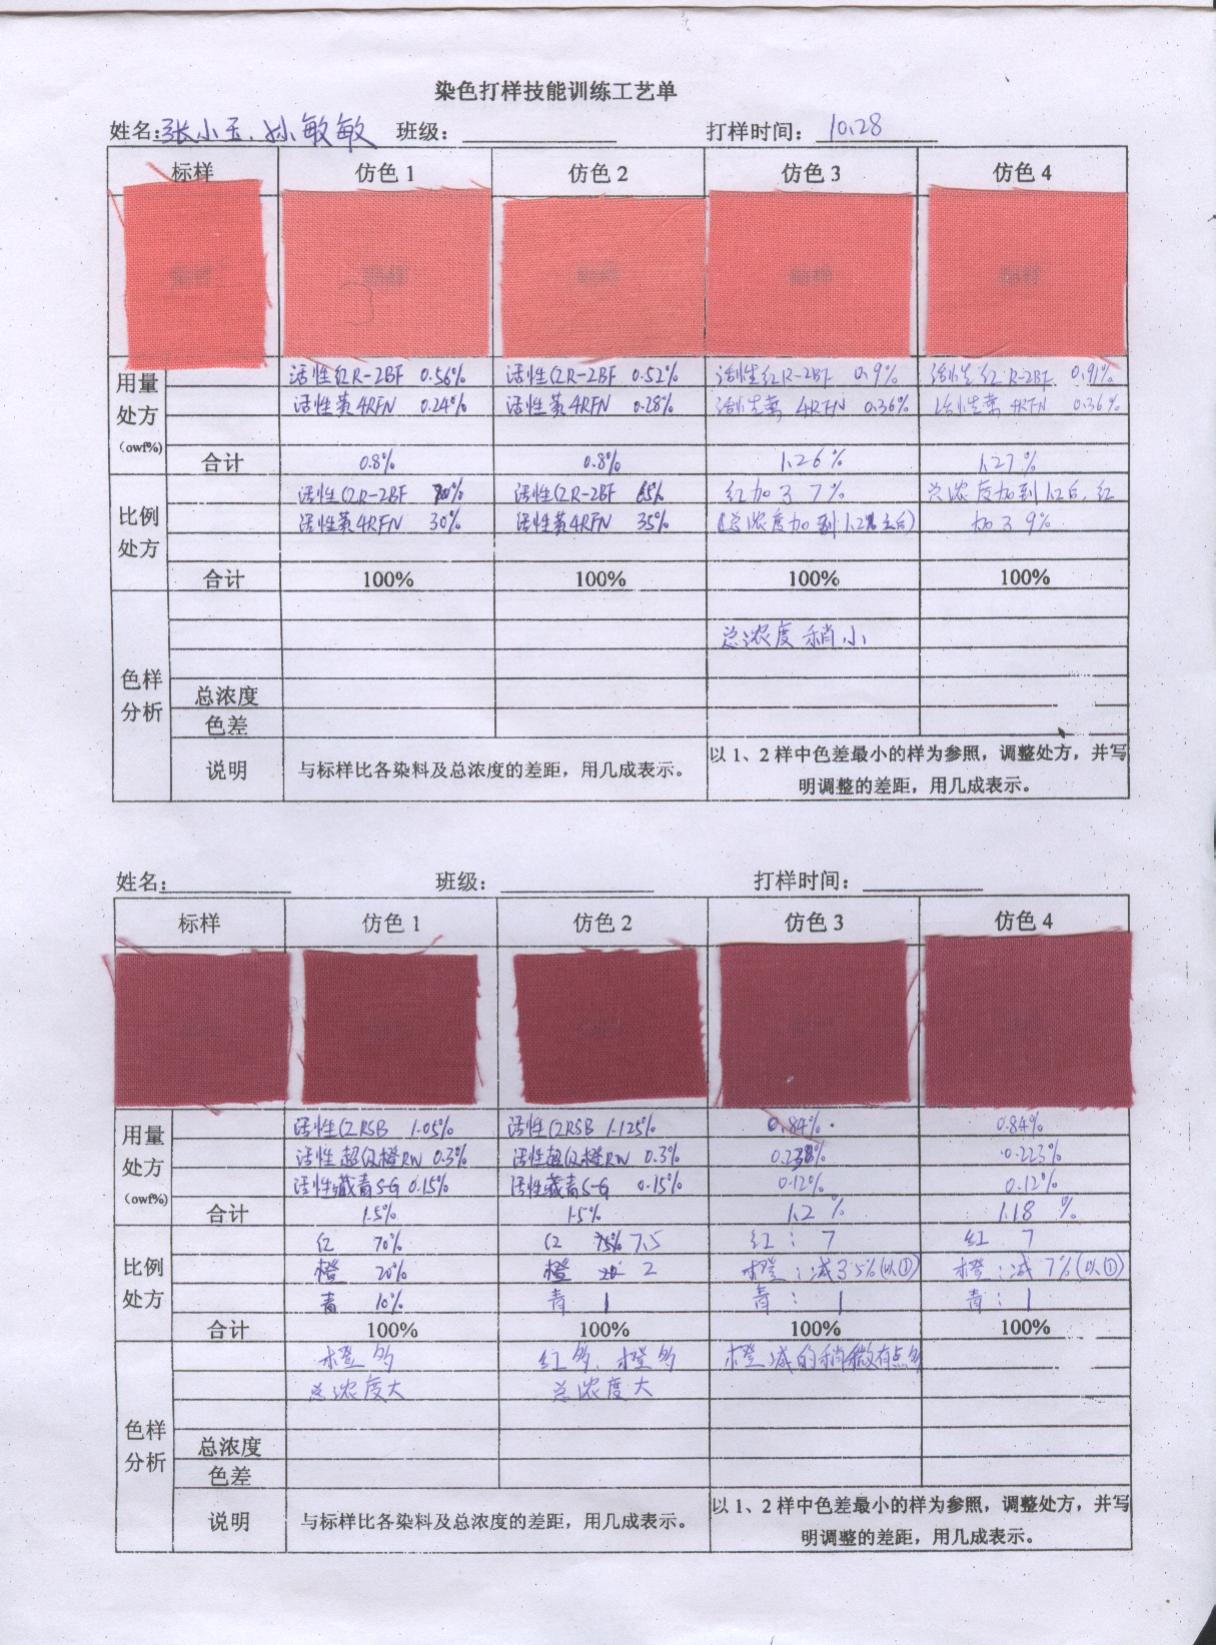 染色打样技能训练工艺单
姓名:张小玉、孙敏敏 班级: 打样时间: 10.28
标样 仿色 1 仿色 2 仿色 3 仿色 4
用量处方(owf%)
活性红R-2BF 0.56% 活性红R-2BF 0.52% 活性红R-2BF 0.9% 活性红R-2BF 0.91%
活性黄4RFN 0.24% 活性黄4RFN 0.28% 活性黄4RFN 0.36% 活性黄4RFN 0.36%
合计 0.8% 0.8% 1.26% 1.27%
比例处方
活性红R-2BF 70% 活性红R-2BF 65% 红加了7% 总浓度加到1.2后,红
活性黄4RFN 30% 活性黄4RFN 35% (总浓度加到1.2%后) 加了9%
合计 100% 100% 100% 100%
色样分析
总浓度稍小
总浓度
色差
说明 与标样比各染料及总浓度的差距，用几成表示。 以 1、2 样中色差最小的样为参照，调整处方，并写
明调整的差距，用几成表示。
姓名: 班级: 打样时间:
标样 仿色 1 仿色 2 仿色 3 仿色 4
用量处方(owf%)
活性红RSB 1.05% 活性红RSB 1.125% 0.84% 0.84%
活性超级橙RW 0.3% 活性超级橙RW 0.3% 0.238% 0.223%
活性藏青S-G 0.15% 活性藏青S-G 0.15% 0.12% 0.12%
合计 1.5% 1.5% 1.2% 1.18%
比例处方
红 70% 红 7.5 红: 7 红 7
橙 20% 橙 2 橙:减3.5%(以①) 橙:减7%(以①)
青 10% 青 1 青: 1 青: 1
合计 100% 100% 100% 100%
色样分析
橙多 红多、橙多 橙减的稍微有点多
总浓度大 总浓度大
总浓度
色差
说明 与标样比各染料及总浓度的差距，用几成表示。 以 1、2 样中色差最小的样为参照，调整处方，并写
明调整的差距，用几成表示。